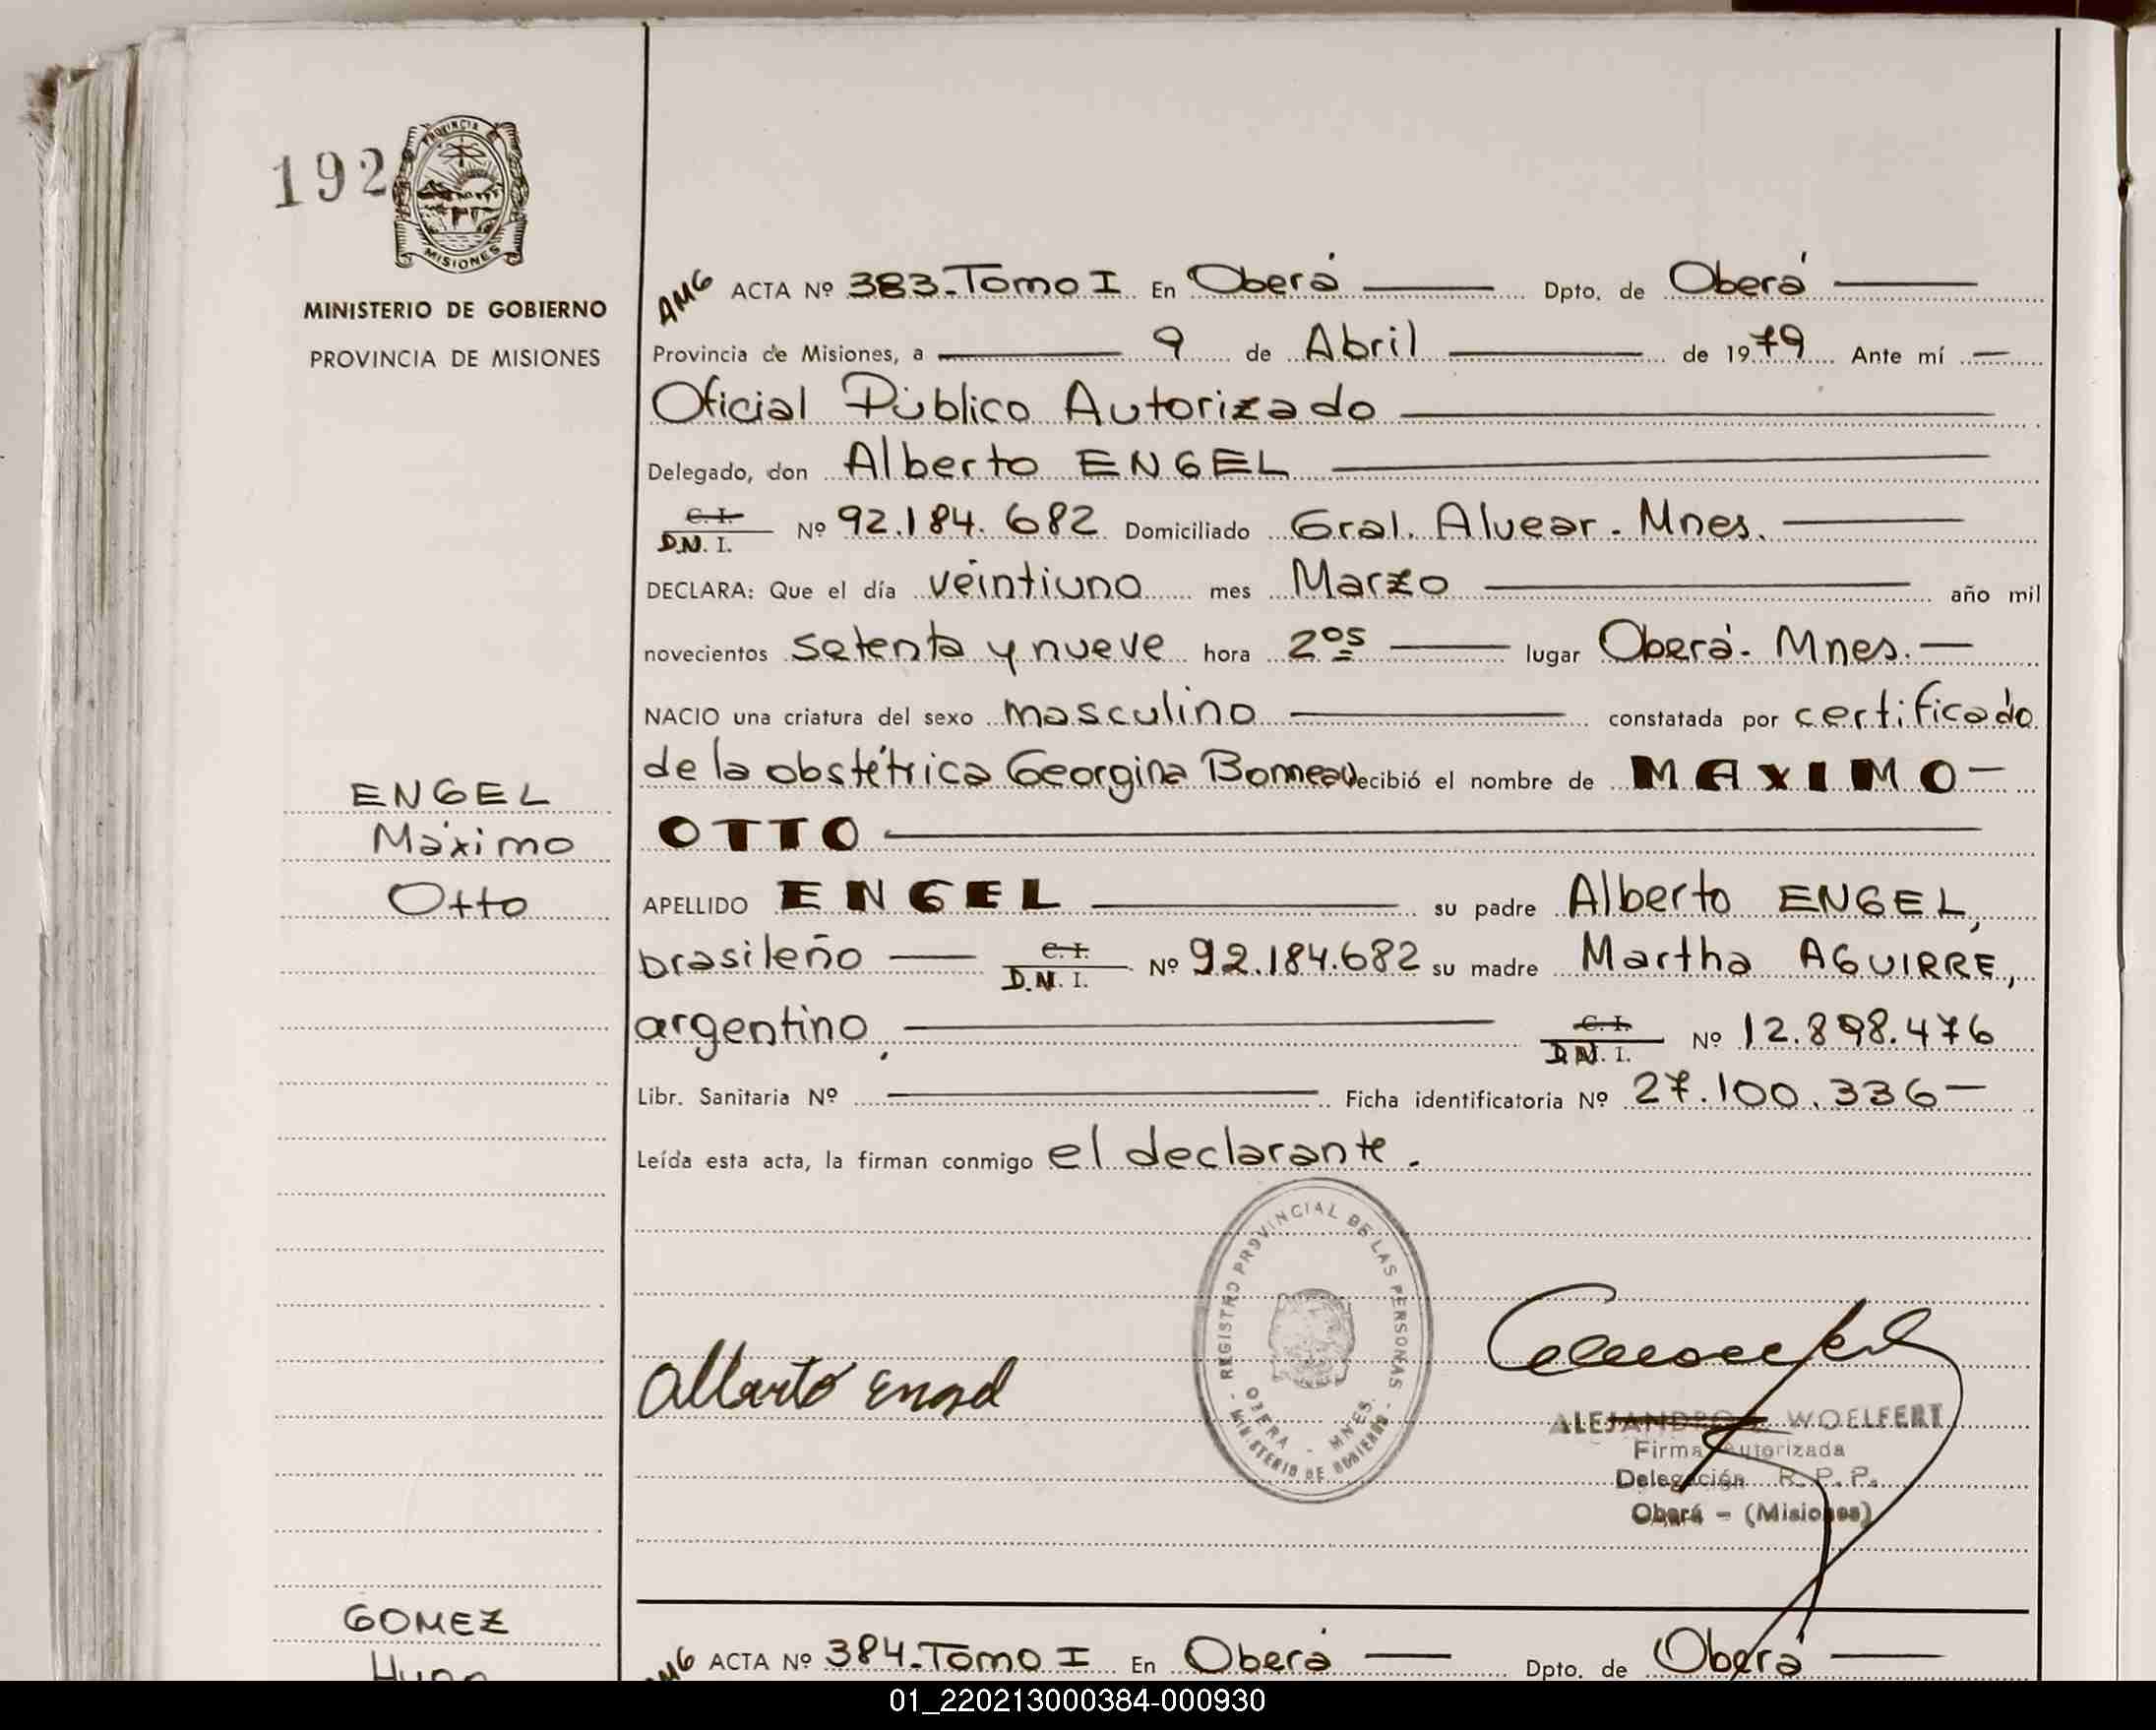 192
PROVINCIA
MISIONES
MINISTERIO DE GOBIERNO
PROVINCIA DE MISIONES
AMG ACTA Nº 383-Tomo I En Oberá Dpto. de Oberá
Provincia de Misiones, a 9 de Abril de 1979 Ante mí
Oficial Público Autorizado
Delegado, don Alberto ENGEL
C. I. D.N. I. Nº 92.184.682 Domiciliado Gral. Alvear. Mnes.
DECLARA: Que el día veintiuno mes Marzo año mil
novecientos setenta y nueve hora 2os lugar Oberá. Mnes.
NACIO una criatura del sexo masculino constatada por certificado
de la obstétrica Georgina recibió el nombre de MAXIMO
ENGEL
Máximo
Otto
OTTO
APELLIDO ENGEL su padre Alberto ENGEL,
brasileño C. I. D.N. I. Nº 92.184.682 su madre Martha AGUIRRE,
argentino. C. I. D N. I. Nº 12.898.476
Libr. Sanitaria Nº Ficha identificatoria Nº 27.100.336
Leída esta acta, la firman conmigo el declarante.
REGISTRO PROVINCIAL DE LAS PERSONAS
OBERA - MNES.
MINISTERIO DE GOBIERNO
Alberto Engel
WOELFERT
Firma Autorizada
Delegación R. P. P.
Oberá - (Misiones)
GOMEZ
Hugo
AMG ACTA Nº 384-Tomo I En Oberá Dpto. de Oberá
01_220213000384-000930